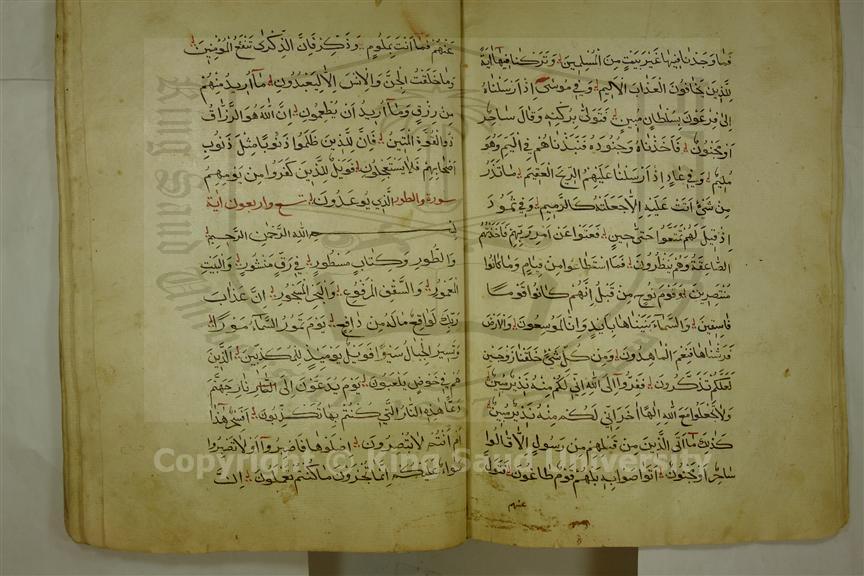 فما وجدنا فيها غير بيت من المسلمين وتركنا فيها آية
للذين يخافون العذاب الأليم وفي موسى إذ أرسلناه
إلى فرعون بسلطان مبين فتولى بركنه وقال ساحر
أو مجنون فأخذناه وجنوده فنبذناهم في اليم وهو
مليم وفي عاد إذ أرسلنا عليهم الريح العقيم ما تذر
من شيء أتت عليه إلا جعلته كالرميم وفي ثمود
إذ قيل لهم تمتعوا حتى حين فعتوا عن أمر ربهم فأخذتهم
الصاعقة وهم ينظرون فما استطاعوا من قيام وما كانوا
منتصرين وقوم نوح من قبل إنهم كانوا قوما
فاسقين والسماء بنيناها بأييد وإنا لموسعون والأرض
فرشناها فنعم الماهدون ومن كل شيء خلقنا زوجين
لعلكم تذكرون ففروا إلى الله إني لكم منه نذير مبين
ولا تجعلوا مع الله إلها آخر إني لكم منه نذير مبين
كذلك ما أتى الذين من قبلهم من رسول إلا قالوا
ساحر أو مجنون أتواصوا به بل هم قوم طاغون فتول
عنهم
عنهم فما أنت بملوم وذكر فإن الذكرى تنفع المؤمنين
وما خلقت الجن والإنس إلا ليعبدون ما أريد منهم
من رزق وما أريد أن يطعمون إن الله هو الرزاق
ذو القوة المتين فإن للذين ظلموا ذنوبا مثل ذنوب
أصحابهم فلا يستعجلون فويل للذين كفروا من يومهم
الذي يوعدون سورة والطور تسع وأربعون آية
بسم الله الرحمن الرحيم
والطور وكتاب مسطور في رق منشور والبيت
المعمور والسقف المرفوع والبحر المسجور إن عذاب
ربك لواقع ما له من دافع يوم تمور السماء مورا
وتسير الجبال سيرا فويل يومئذ للمكذبين الذين
هم في خوض يلعبون يوم يدعون إلى النار نار جهنم
دعا هذه النار التي كنتم بها تكذبون أفسحر هذا
أم أنتم لا تبصرون اصلوها فاصبروا أو لا تصبروا
سواء عليكم إنما تجزون ما كنتم تعملون إن
Copyright © King Saud University